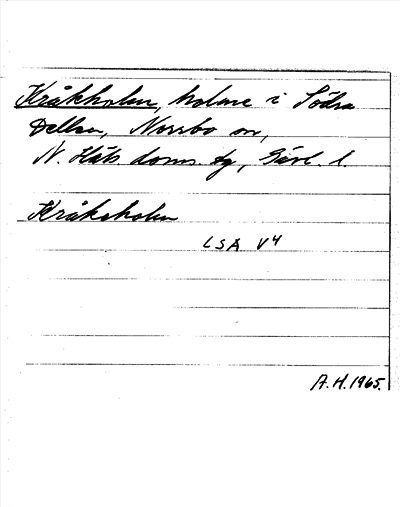 Kråkholen, holme i Södra
Dellen, Norrbo sn,
N. Häls. doms. tg, Gävl. l.
Kråkoholen
LSA V4
A.H. 1965.